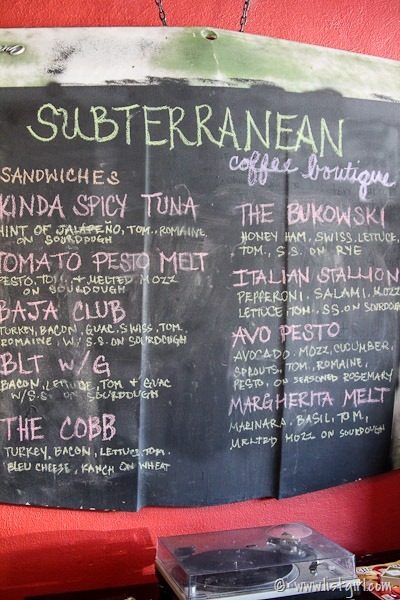 SUBTERRANEAN
coffee boutique
SANDWICHES
KINDA SPICY TUNA
HINT OF JALAPEÑO, TOM., ROMAINE,
ON SOURDOUGH
TOMATO PESTO MELT
PESTO, TOM & MELTED MOZZ
ON SOURDOUGH
BAJA CLUB
TURKEY, BACON, GUAC, SWISS, TOM.
ROMAINE, W/ S.S. ON SOURDOUGH
BLT W/G
BACON, LETTUCE, TOM & GUAC
W/S.S. ON SOURDOUGH
THE COBB
TURKEY, BACON, LETTUCE, TOM.
BLEU CHEESE, RANCH ON WHEAT
THE BUKOWSKI
HONEY HAM, SWISS, LETTUCE,
TOM., S.S. ON RYE
ITALIAN STALLION
PEPPERONI, SALAMI, MOZZ
LETTUCE, TOM., S.S. ON SOURDOUGH
AVO PESTO
AVOCADO, MOZZ, CUCUMBER,
SPROUTS, TOM., ROMAINE,
PESTO, ON SEASONED ROSEMARY
MARGHERITA MELT
MARINARA, BASIL, TOM,
MELTED MOZZ ON SOURDOUGH
© www.listgirl.com